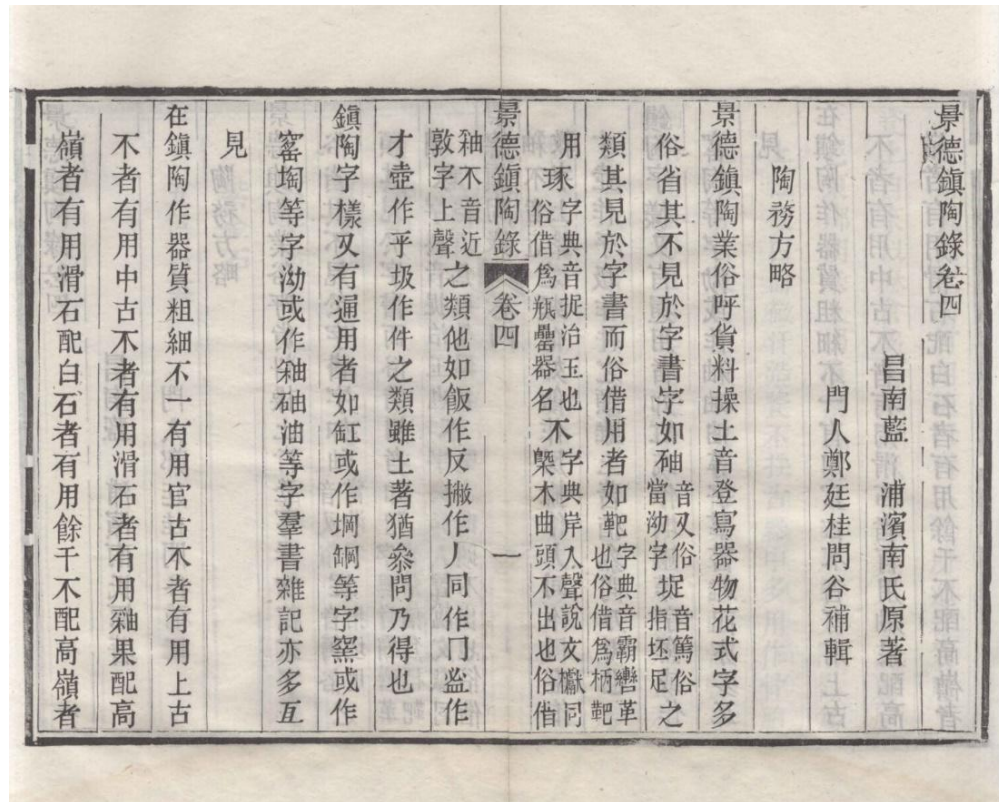 景德鎮陶錄卷四
昌南藍 浦濱南氏原著
門人鄭廷桂問谷補輯
陶務方略
景德鎮陶業俗呼貨料操土音登寫器物花式字多
俗省其不見於字書字如䂇音又俗當泑字𡉏音篤俗指坯足之
類其見於字書而俗借用者如靶字典音霸轡革也俗借為柄靶
用㺱字典音捉治玉也俗借為瓶罍器名不字典岸入聲說文櫱同㯷木曲頭不出也俗借
景德鎮陶錄 卷四 一
釉不音近敦字上聲之類他如飯作反撇作人同作冂盗作
才壺作乎圾作件之類雖土著猶叅問乃得也
鎮陶字樣又有通用者如缸或作堈鋼等字窯或作
窰匋等字泑或作釉䂇油等字羣書雜記亦多互
見
在鎮陶作器質粗細不一有用官古不者有用上古
不者有用中古不者有用滑石者有用釉果配高
嶺者有用滑石配白石者有用餘干不配高嶺者